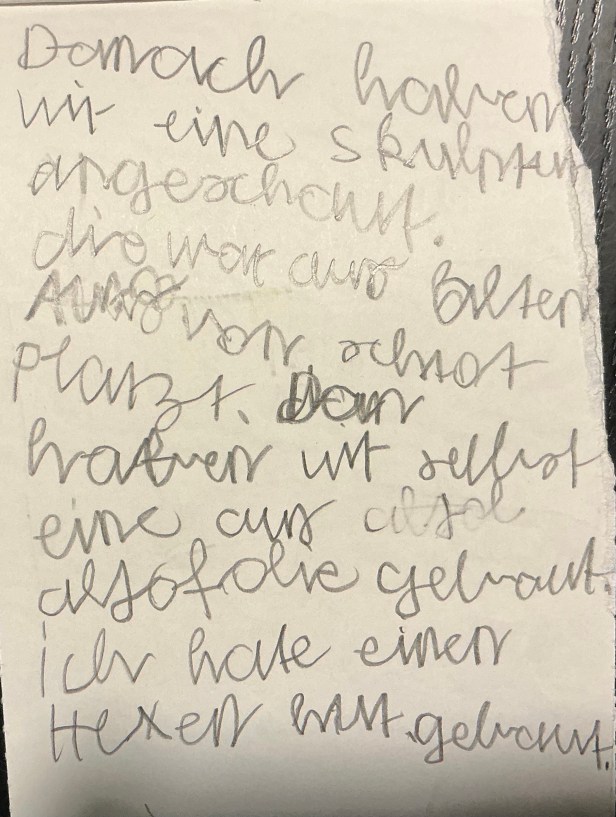 Danach haben
wir eine skulptur
angeschaut.
die war aus
Alten
von schrot
platzt. Dan
haben wir selbst
eine aus
alsofolie gebaut.
ich hate einen
Hexen hut.gebaut.